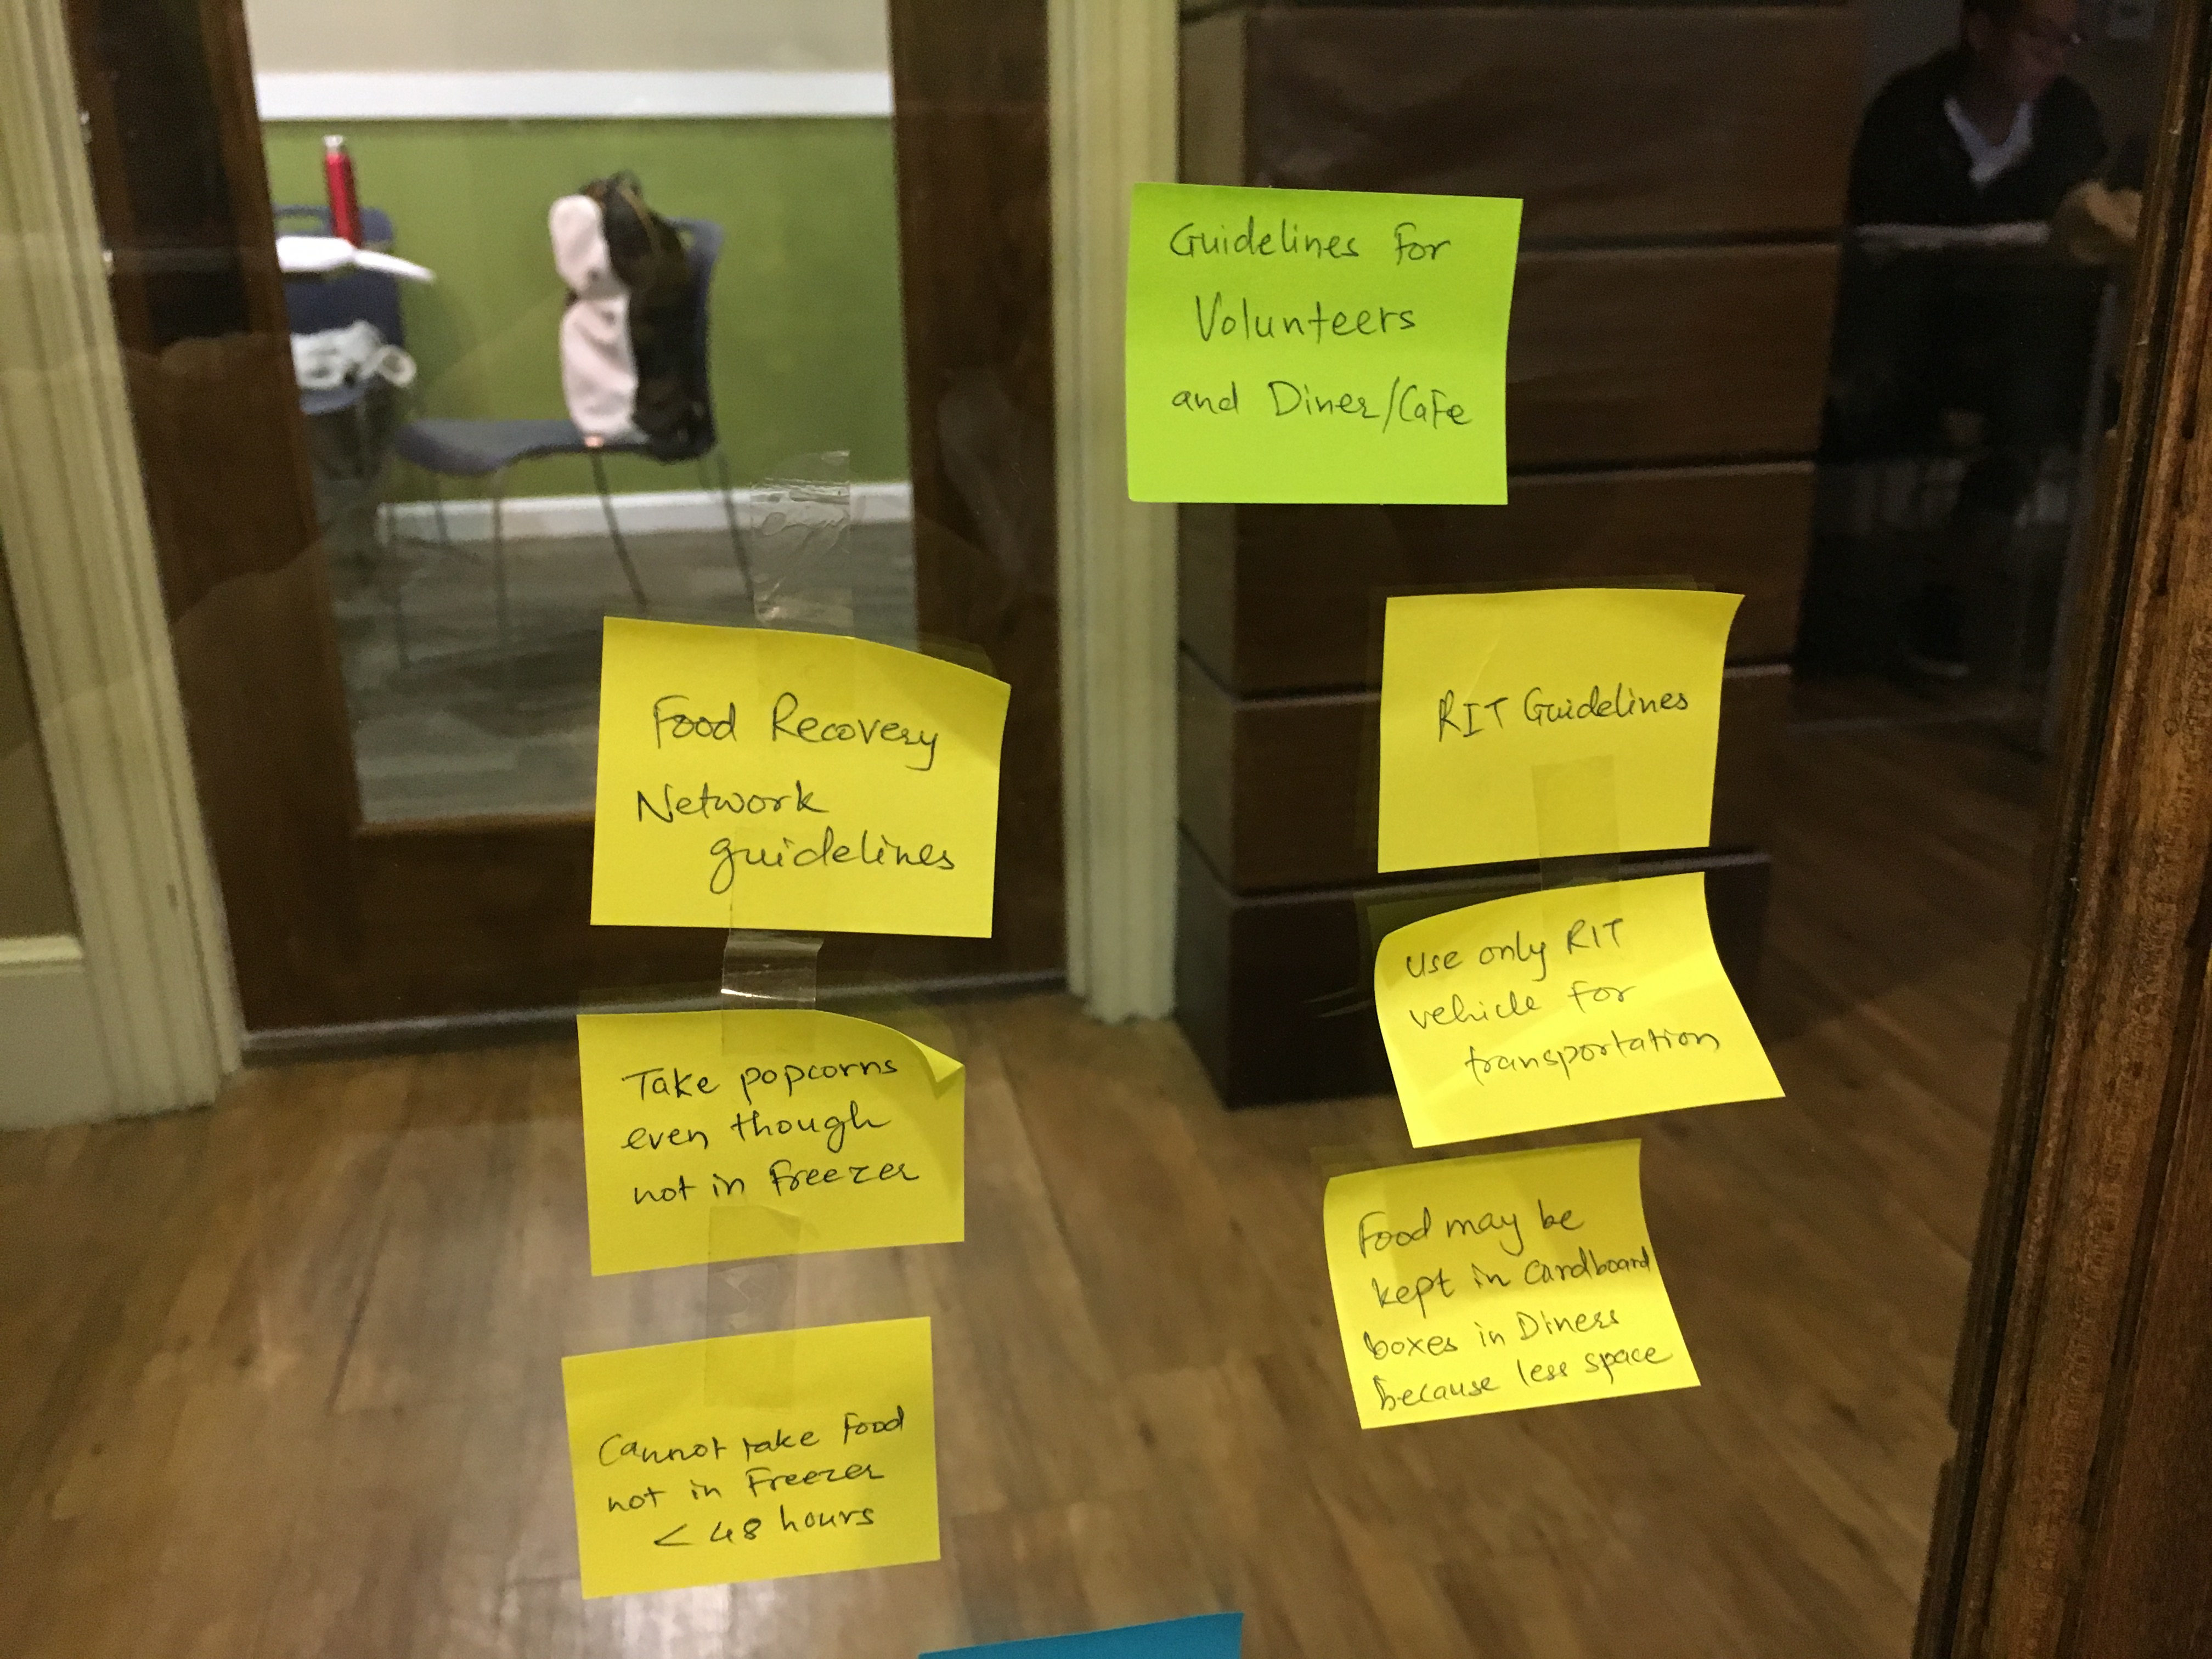 Guidelines for
Volunteers
and Diner/Cafe
Food Recovery
Network
guidelines
Take popcorns
even though
not in freezer
Cannot take food
not in Freezer
< 48 hours
RIT Guidelines
Use only RIT
vehicle for
transportation
Food may be
kept in cardboard
boxes in Diners
because less space